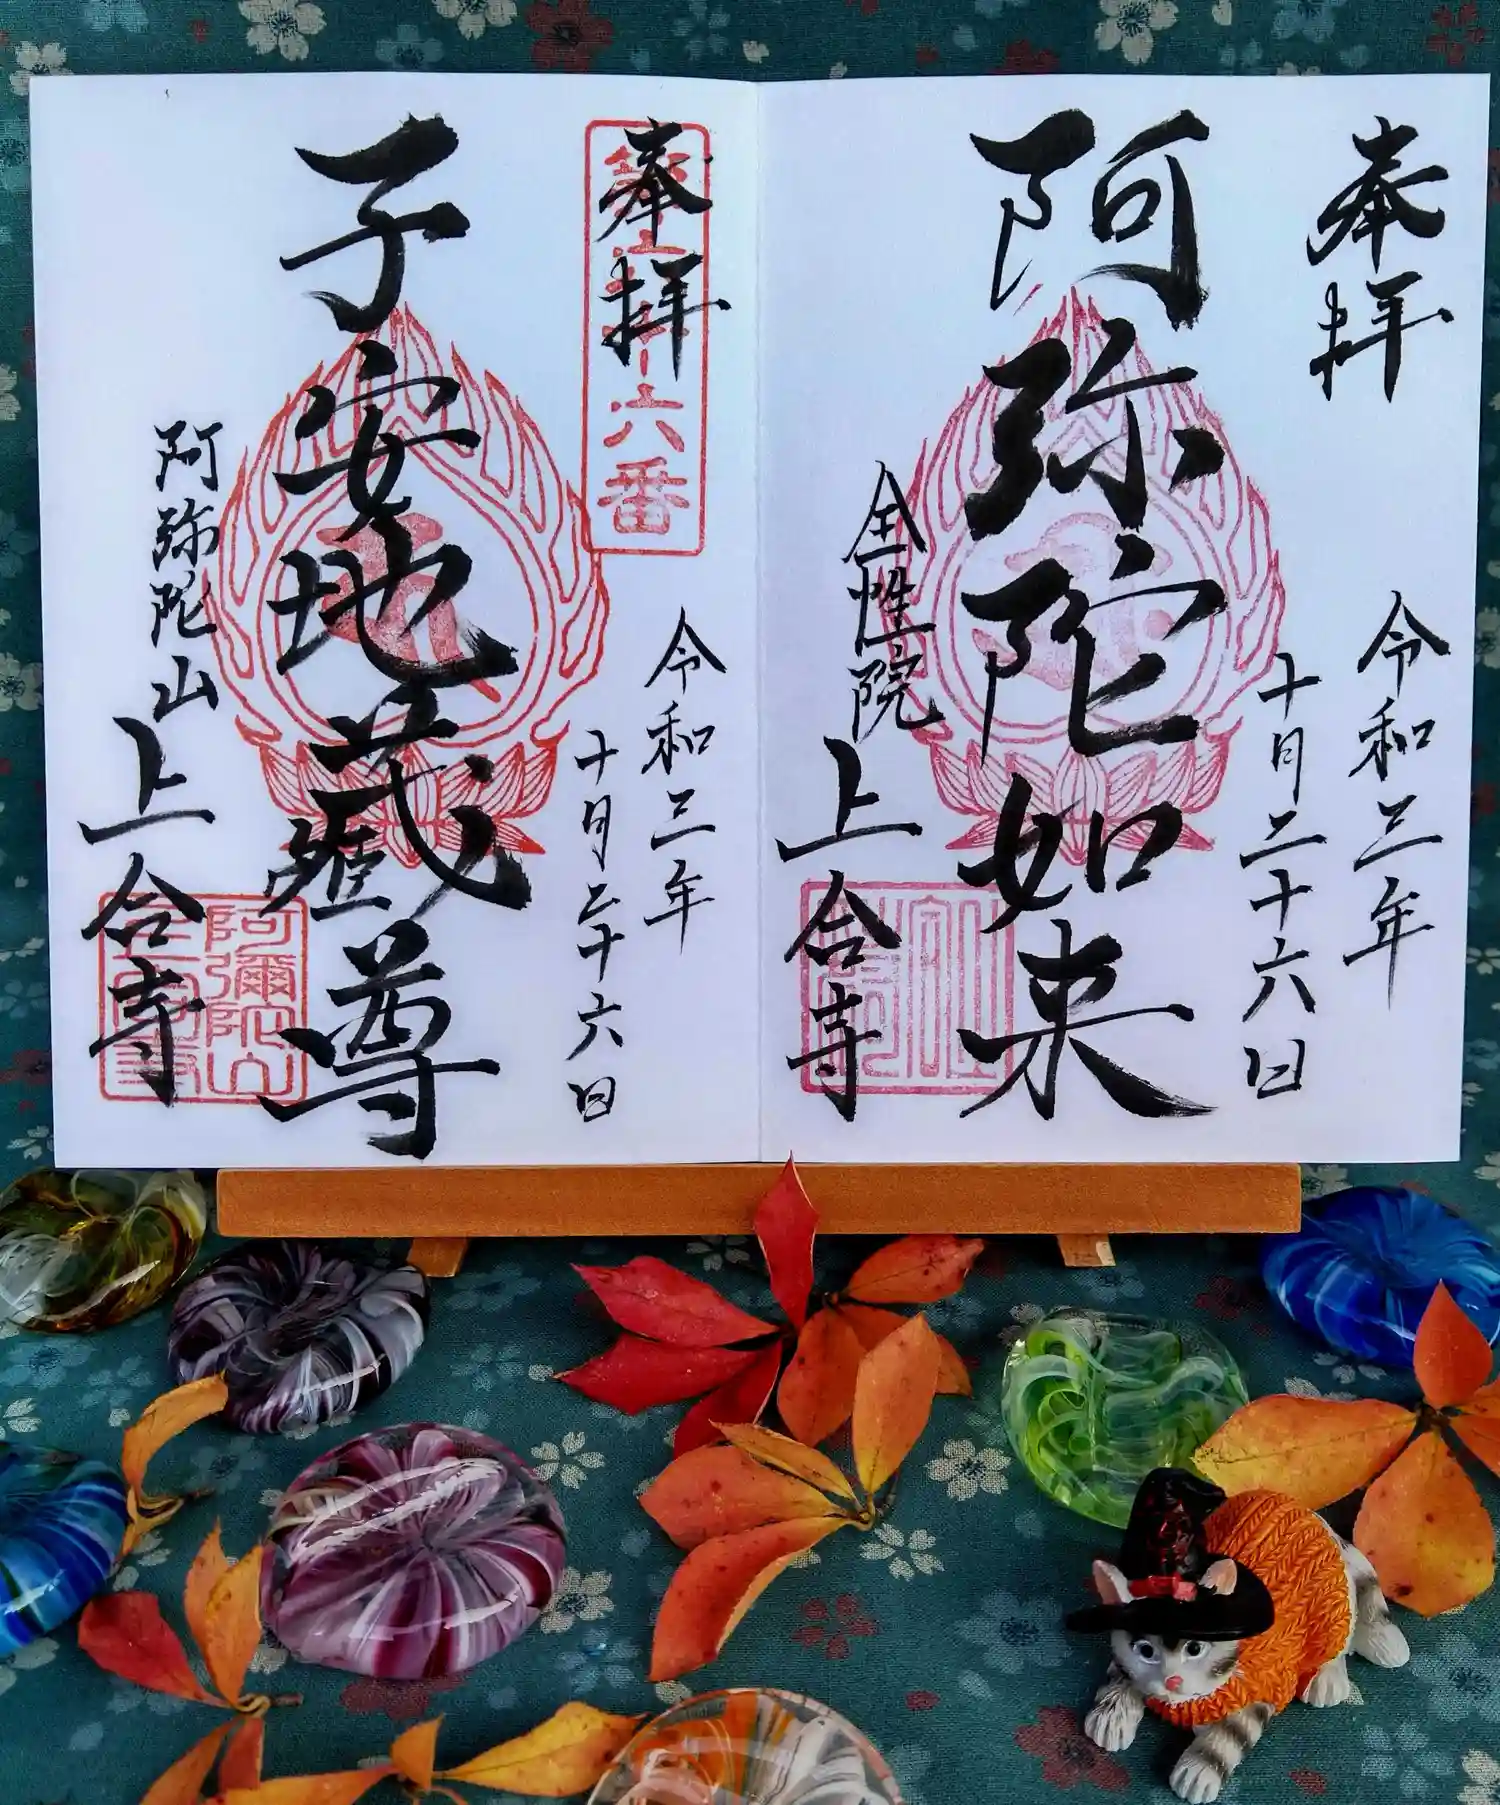 奉拝
令和三年
十月二十六日
阿弥陀如来
全性院
上合寺
奉拝
六番
令和三年
十月二十六日
子安地蔵尊
阿弥陀山
上合寺
阿彌陀山